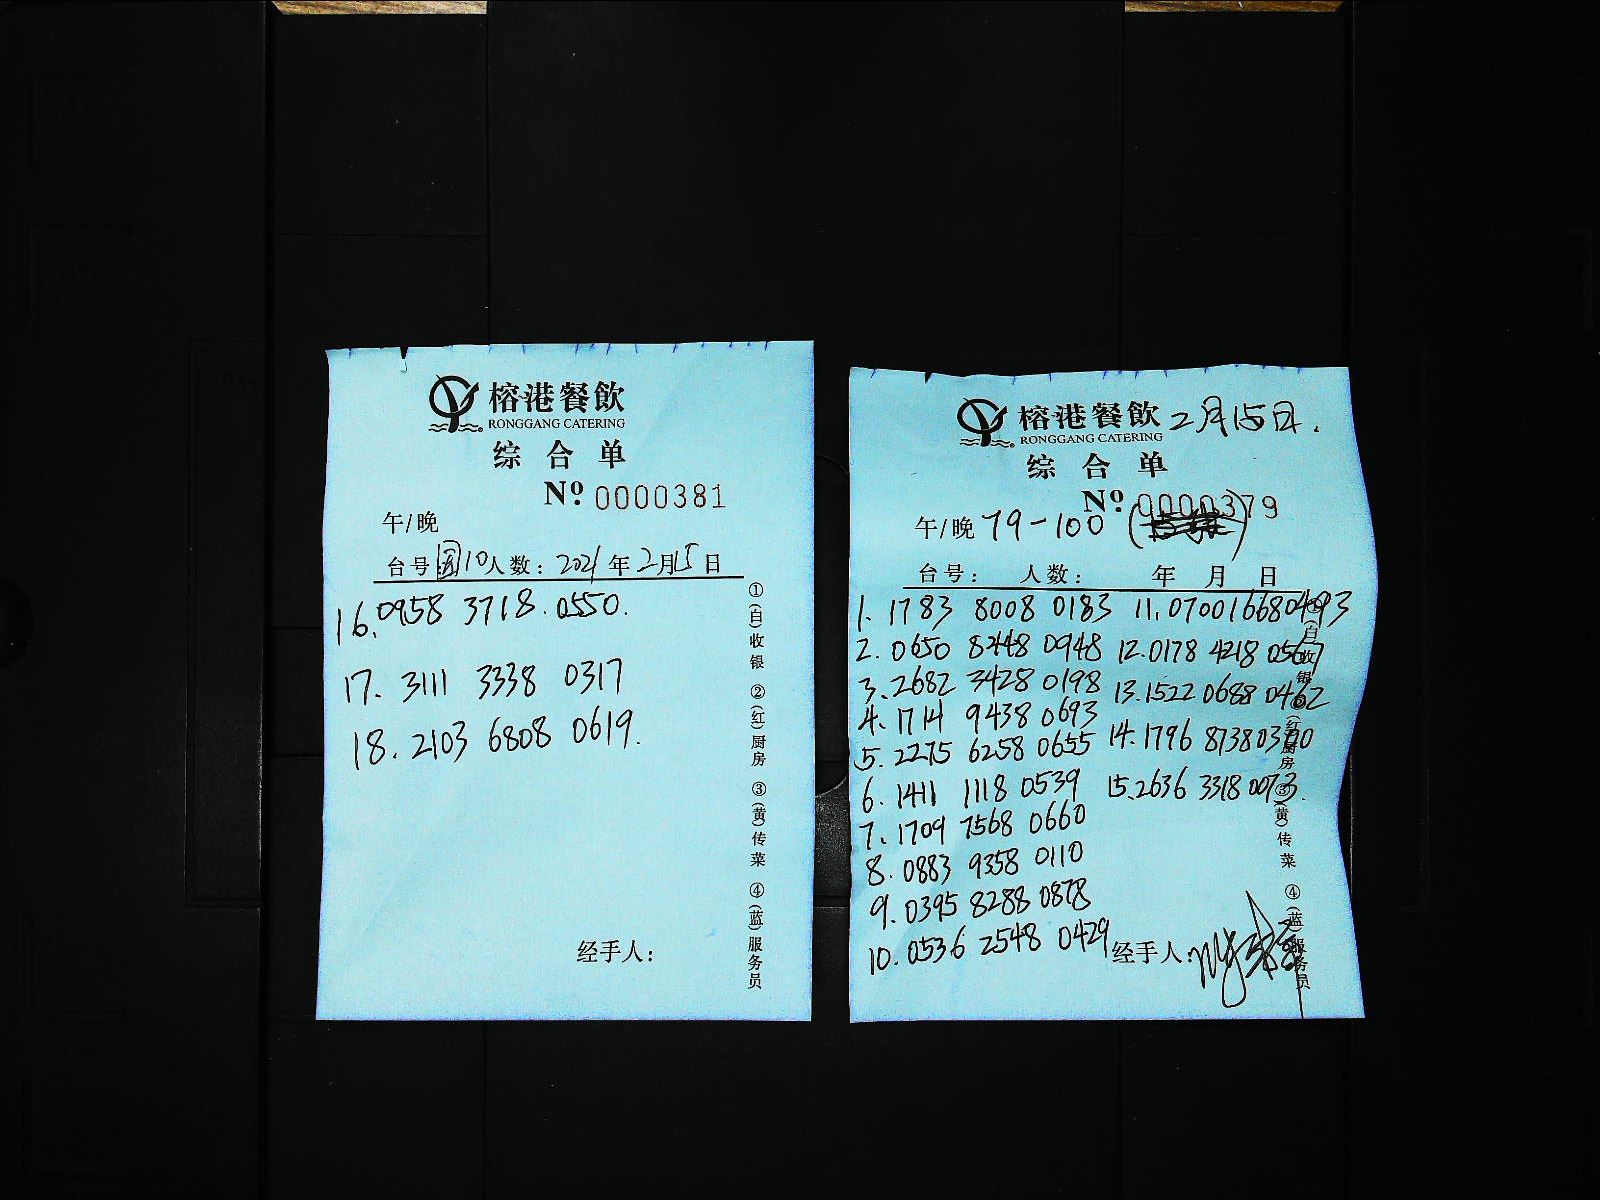 榕港餐飲
RONGGANG CATERING
综合单
Nº 0000381
午/晚
台号: 10 人数: 2021年2月15日
16. 0958 3718 0550.
17. 3111 3338 0317
18. 2103 6808 0619.
经手人:
①(白)收银 ②(红)厨房 ③(黄)传菜 ④(蓝)服务员
榕港餐飲 2月15日.
RONGGANG CATERING
综合单
Nº 0000379
午/晚 79-100
台号: 人数: 年 月 日
1. 1783 8008 0183 11. 0700 1668 0493
2. 0650 8248 0948 12. 0178 4218 0567
3. 2682 3428 0198 13. 1522 0688 0462
4. 1714 9438 0693
5. 2275 6258 0655 14. 1796 8738
6. 1411 1118 0539 15. 2636 3318 0073.
7. 1709 7568 0660
8. 0883 9358 0110
9. 0395 8288 0878
10. 0536 2548 0429 经手人:
①(白)收银 ②(红)厨房 ③(黄)传菜 ④(蓝)服务员